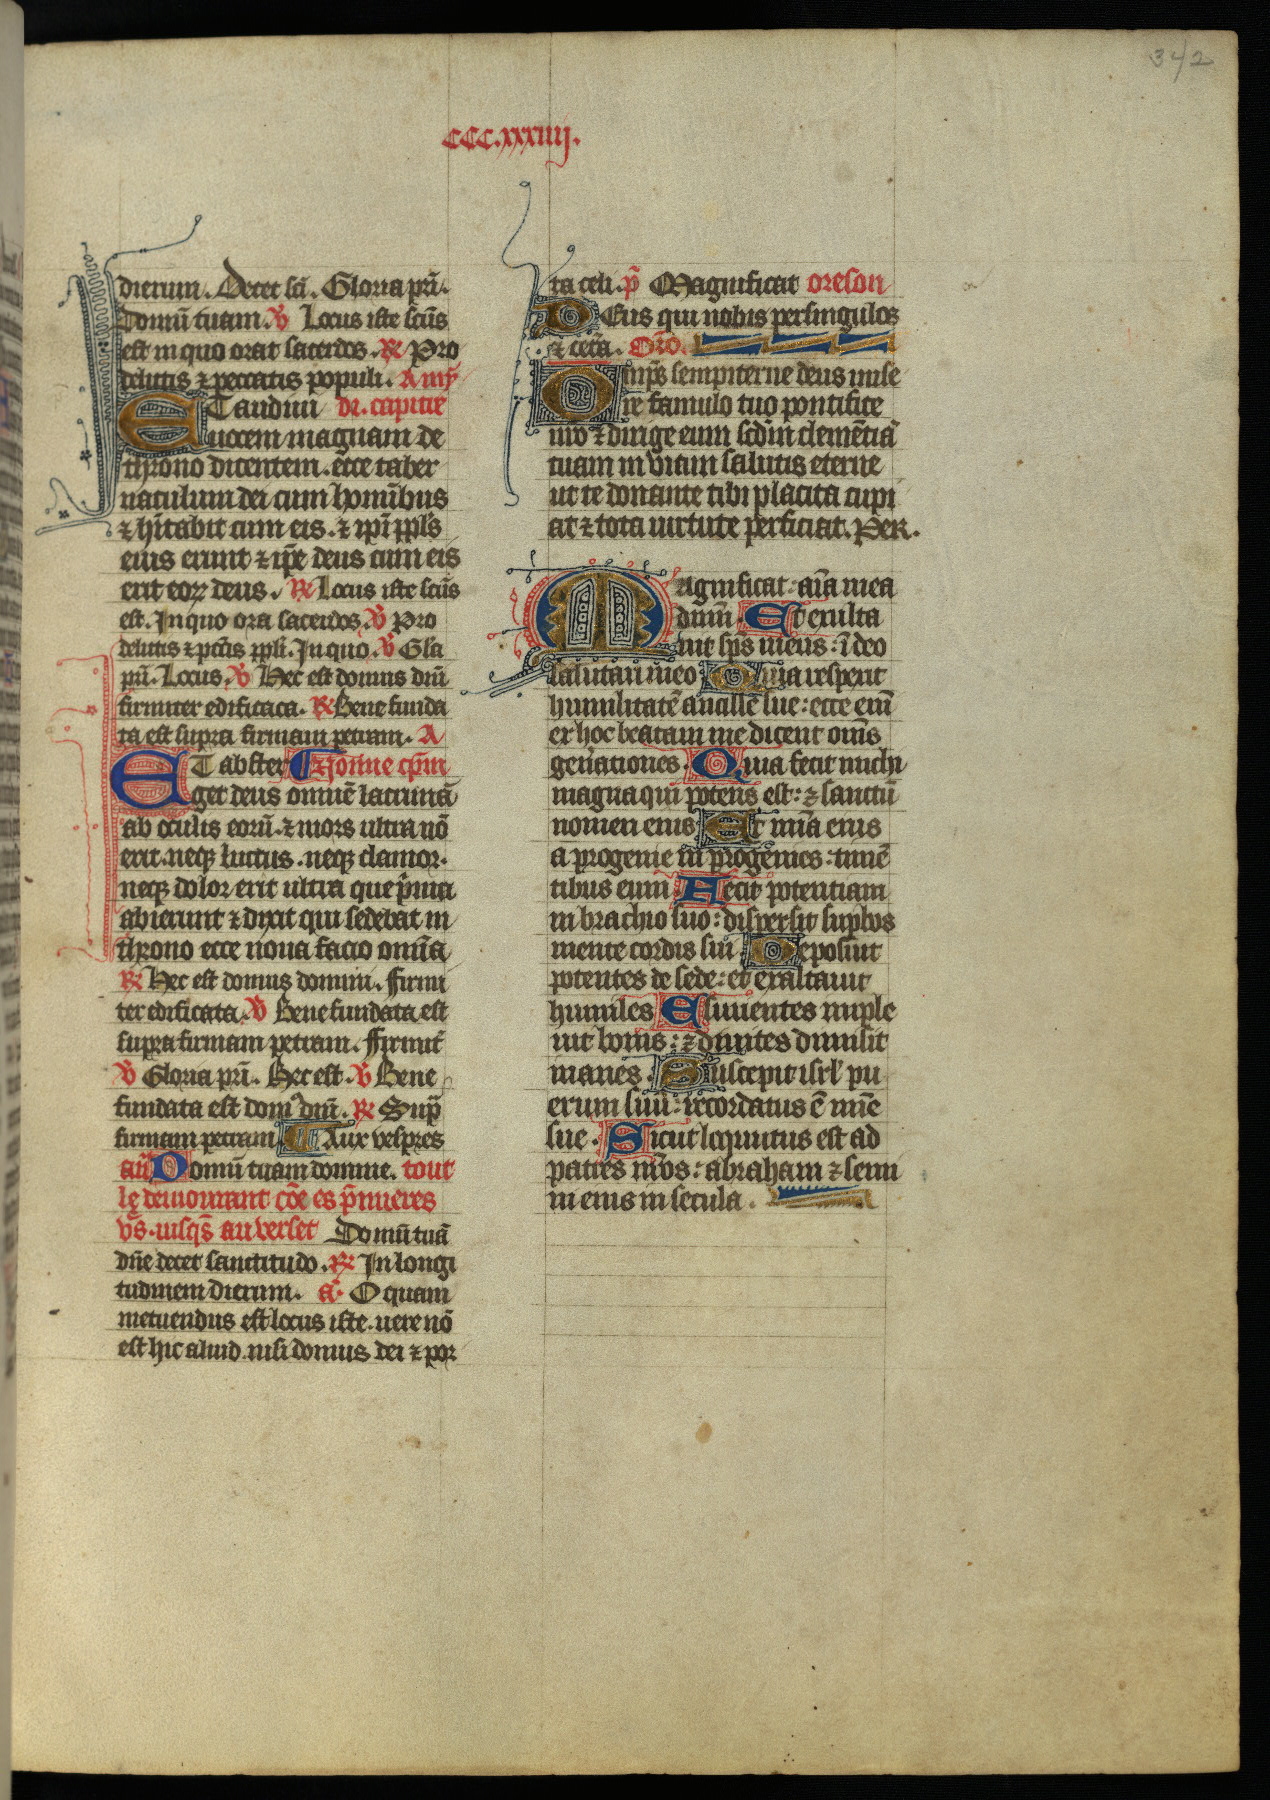 342
CCC.xxxiiij.
dierum. Decet scā. Gloria pr̄i.
Domū tuam. V̄ Locus iste scūs
est in quo orat sacerdos. R̄ Pro
delictis ⁊ peccatis populi. A mīj
ET audiui di. capitle
uocem magnam de
throno dicentem. ecce taber
naculum dei cum hominibus
⁊ hītabit cum eis. ⁊ ipī ppl̄s
eius erunt ⁊ ip̄e deus cum eis
erit eoꝝ deus. R̄ Locus iste scūs
est. In quo ora sacerdos. V̄ Pro
delictis ⁊ pctīs ppl̄i. In quo. V̄ Gl̄a
pr̄i. Locus. V̄ Hec est domus dn̄i
firmiter edificaca. R̄ Bene funda
ta est supra firmam petram. A
ET abster nonne cpm̄
get deus omnē lacrimā
ab oculis eorū. ⁊ mors ultra nō
erit. neqꝫ luctus. neqꝫ clamor.
neqꝫ dolor erit ultra que p̄ma
abierunt ⁊ dixit qui sedebat in
throno ecce noua facio omīa
R̄ Hec est domus domini. Firmi
ter edificata. V̄ Bene fundata est
supra firmam petram. Firmit̄
V̄ Gloria pr̄i. Hec est. V̄ Bene
fundata est domꝰ dn̄i. R̄ Sup̄
firmam petram. Aux vespres
an̄ Domū tuam domine. tout
le demourant cōe es p̄mieres
vs̄. iusqs̄ au verset Domū tuā
dn̄e decet sanctitudo. R̄ In longi
tudinem dierum. a. O quam
metuendus est locus iste. uere nō
est hic aliud. nisi domus dei ⁊ por
ta celi. p̄ Magnificat oreson
DEus qui nobis per singulos
⁊ cetā. Orō.
Omp̄s sempiterne deus mise
re famulo tuo pontifice
nr̄o ⁊ dirige eum scdm̄ clemētiā
tuam in viam salutis eterne
ut te donante tibi placita cupi
at ⁊ tota uirtute perficiat. Per.
Magnificat. aīa mea
dnm̄. Et exulta
uit sps̄ meus: ī deo
salutari meo Quia respexit
humilitatē ancille sue: ecce eni
ex hoc beatam me dicent om̄s
gen̄ationes. Quia fecit michi
magna qui potens est: ⁊ sanctū
nomen eius Et mīa eius
a progenie in progenies: timē
tibus eum Fecit potentiam
in brachio suo: dispersit sup̄bos
mente cordis sui. Deposuit
potentes de sede: et exaltauit
humiles Esurientes imple
uit bonis: ⁊ diuites dimisit
inanes. Suscepit isrl̄ pu
erum suū: recordatus ē mīe
sue. Sicut locutus est ad
patres nr̄os: abraham ⁊ semi
ni eius in secula.